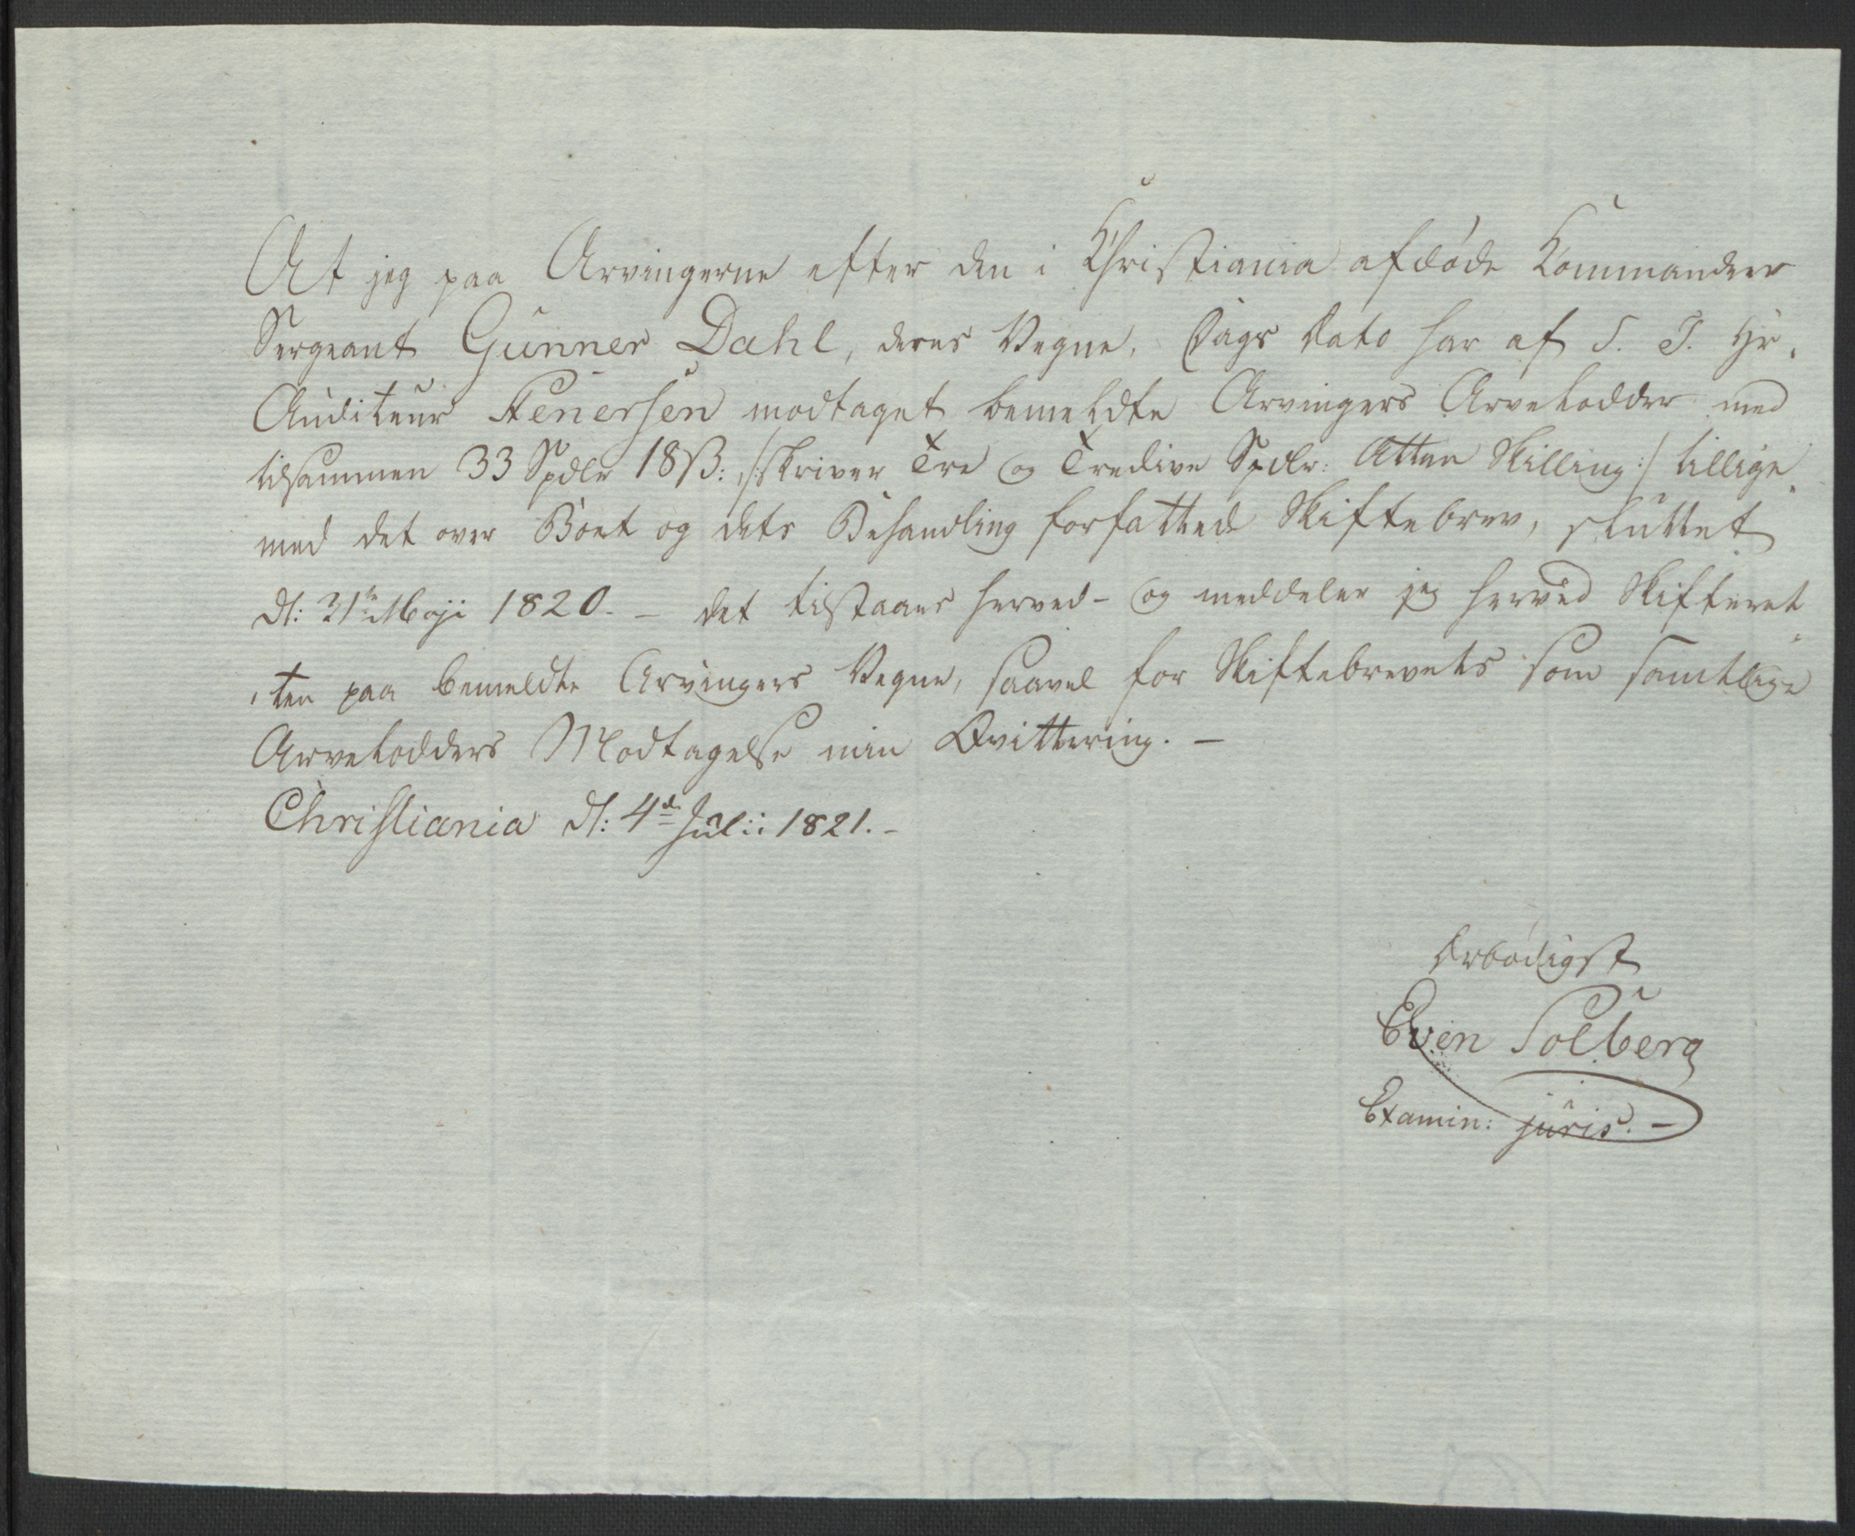 At jeg paa Arvingerne efter den i Christiania afdøde Commandeer
Sergeant Gunner Dahl, deres Vegne, Dags Dato har af S. T. Hr.
Auditeur Fenersen modtaget bemeldte Arvingers Arvelodder med
tilsammen 33 Spdlr 18 ß: /: skriver Tre og Tredive Spdlr: Atten Skilling :/ tillige
med det over Boet og dets Behandling forfattede Skiftebrev, sluttet
dl: 31te Maji 1820. – det tilstaaes herved – og meddeler jeg herved Skifteret
ten paa bemeldte Arvingers Vegne, saavel for Skiftebrevets som samtlige
Arvelodders Modtagelse min Qvittering. –
Christiania dl: 4de Julii 1821. –
Ærbødigst
Even Solberg
Examin: juris. –